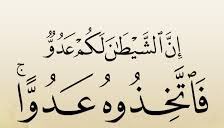 إِنَّ ٱلشَّيْطَـٰنَ لَكُمْ عَدُوٌّ
فَٱتَّخِذُوهُ عَدُوًّا ۚ